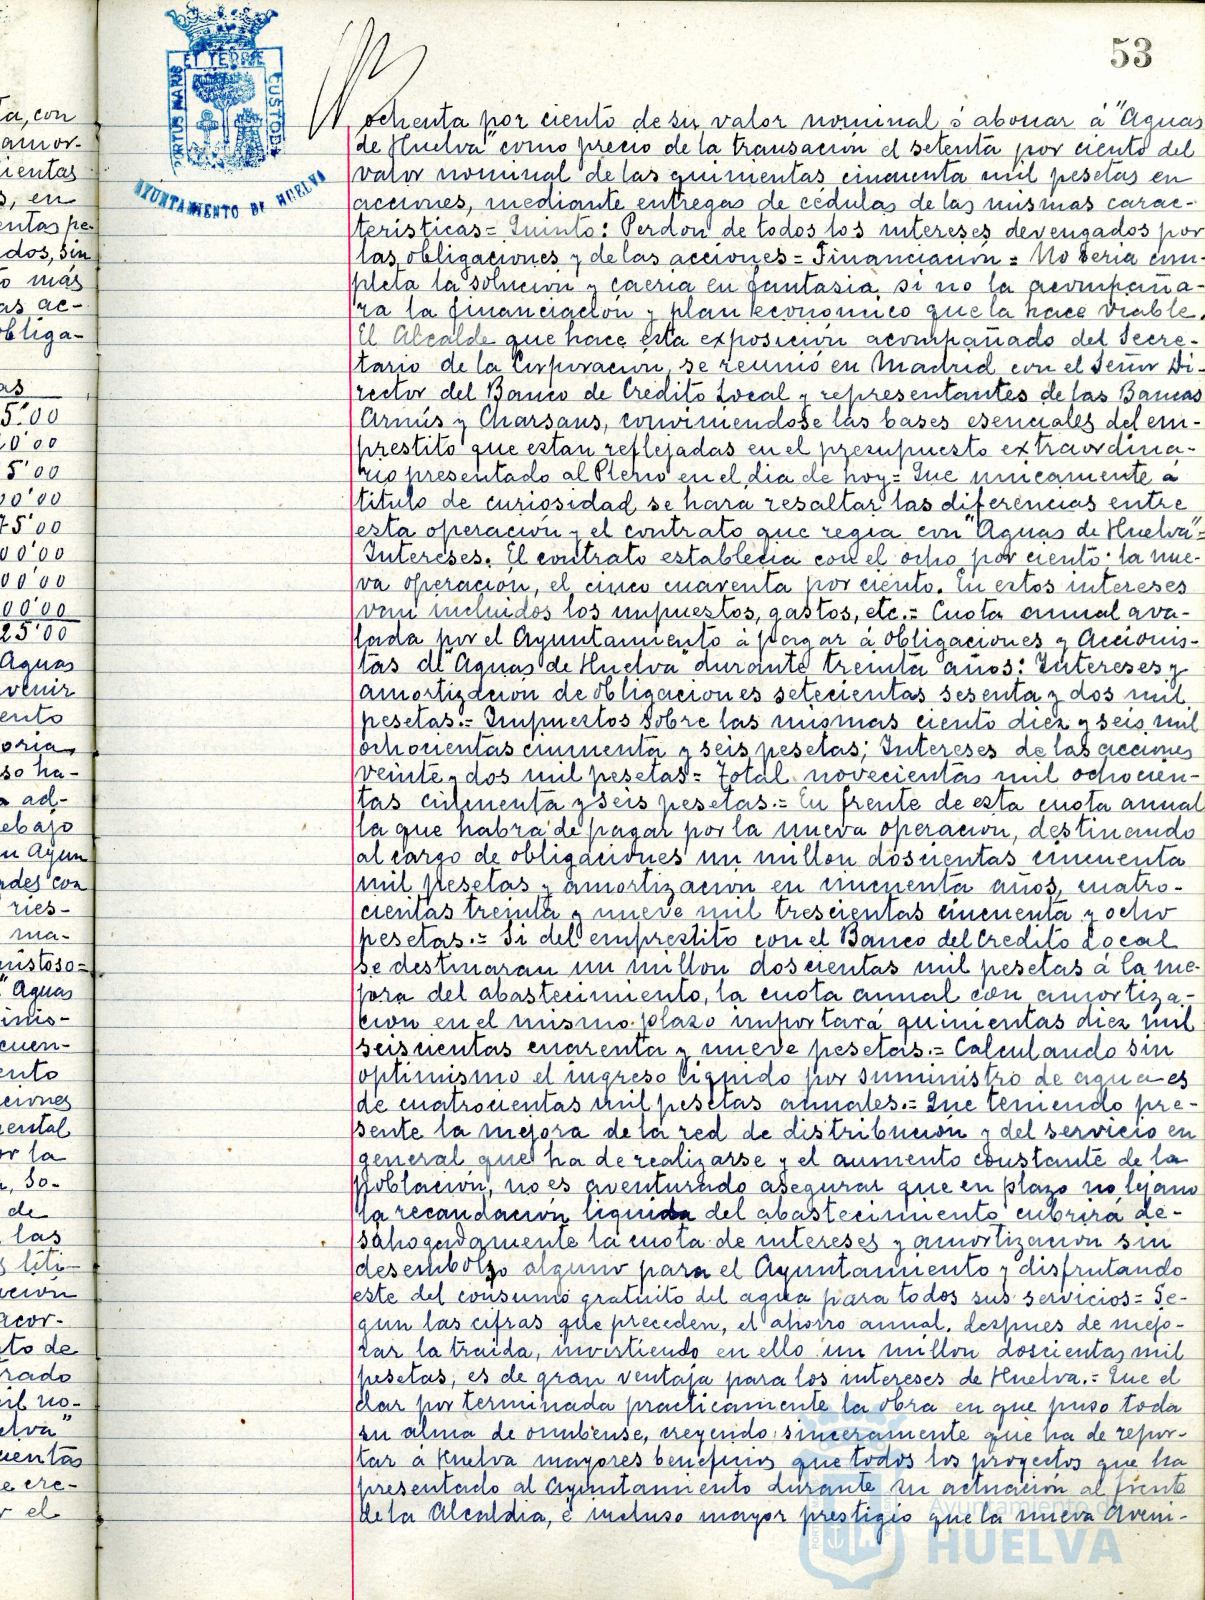 53
PORTUS MARIS ET TERRE CUSTODIA
AYUNTAMIENTO DE HUELVA
ochenta por ciento de su valor nominal ó abonar á "Aguas
de Huelva" como precio de la transación el setenta por ciento del
valor nominal de las quinientas cincuenta mil pesetas en
acciones, mediante entregas de cédulas de las mismas carac-
terísticas= Quinto: Perdon de todos los intereses devengados por
las obligaciones y de las acciones= Financiación= No seria com-
pleta la solución y caeria en fantasia si no la acompaña-
ra la financiación y plan económico que la hace viable.
El Alcalde que hace esta exposición acompañado del Secre-
tario de la Corporación, se reunió en Madrid con el Señor Di-
rector del Banco de Crédito Local y representantes de las Bancas
Arnús y Charsans, conviniendose las bases esenciales del em-
prestito que estan reflejadas en el presupuesto extraordina-
rio presentado al Pleno en el dia de hoy= Que unicamente á
titulo de curiosidad se hará resaltar las diferencias entre
esta operación y el contrato que regia con "Aguas de Huelva"=
Intereses. El contrato establecia con el ocho por ciento; la nue-
va operación, el cinco cuarenta por ciento. En estos intereses
van incluidos los impuestos, gastos, etc.= Cuota anual ava-
lada por el Ayuntamiento á pagar á obligaciones y Accionis-
tas de "Aguas de Huelva" durante treinta años: Intereses y
amortización de obligaciones setecientas sesenta y dos mil
pesetas.= Impuestos sobre las mismas ciento diez y seis mil
ochocientas cincuenta y seis pesetas; Intereses de las acciones
veinte y dos mil pesetas= Total novecientas mil ochocien-
tas cincuenta y seis pesetas.= En frente de esta cuota anual
la que habrá de pagar por la nueva operación, destinando
al cargo de obligaciones un millon doscientas cincuenta
mil pesetas y amortización en cincuenta años, cuatro-
cientas treinta y nueve mil trescientas cincuenta y ocho
pesetas.= Si del emprestito con el Banco del Credito Local
se destinaran un millon doscientas mil pesetas á la me-
jora del abastecimiento, la cuota anual con amortiza-
cion en el mismo plazo importará quinientas diez mil
seiscientas cuarenta y nueve pesetas.= Calculando sin
optimismo el ingreso liquido por suministro de agua es
de cuatrocientas mil pesetas anuales.= Que teniendo pre-
sente la mejora de la red de distribución y del servicio en
general que ha de realizarse y el aumento constante de la
población, no es aventurado asegurar que en plazo no lejano
la recaudación liquida del abastecimiento cubrirá de-
sahogadamente la cuota de intereses y amortizacion sin
desembolso alguno para el Ayuntamiento y disfrutando
este del consumo gratuito del agua para todos sus servicios= Se-
gun las cifras que preceden, el ahorro anual, despues de mejo-
rar la traida, invirtiendo en ello un millon doscientas mil
pesetas, es de gran ventaja para los intereses de Huelva.= Que el
dar por terminada practicamente la obra en que puso toda
su alma de onubense, creyendo sinceramente que ha de repor-
tar á Huelva mayores beneficios que todos los proyectos que ha
presentado al Ayuntamiento durante su actuación al frente
de la Alcaldia, é incluso mayor prestigio que la nueva Aveni-
Ayuntamiento de
HUELVA
ta, con
amor-
cientas
s, en
entas pe-
dos, sin
o más
as ac-
obliga-
as
5'00
0'00
5'00
00'00
75'00
00'00
00'00
00'00
25'00
Aguas
venir
ento
oria,
so ha-
ad-
debajo
u Ayun
des con
ries-
ma-
mistoso=
"Aguas
inis-
cuen-
ento
ciones
mental
or la
, so-
de
las
s liti-
ación
acor-
to de
rado
il no-
elva"
uentas
e cre-
el